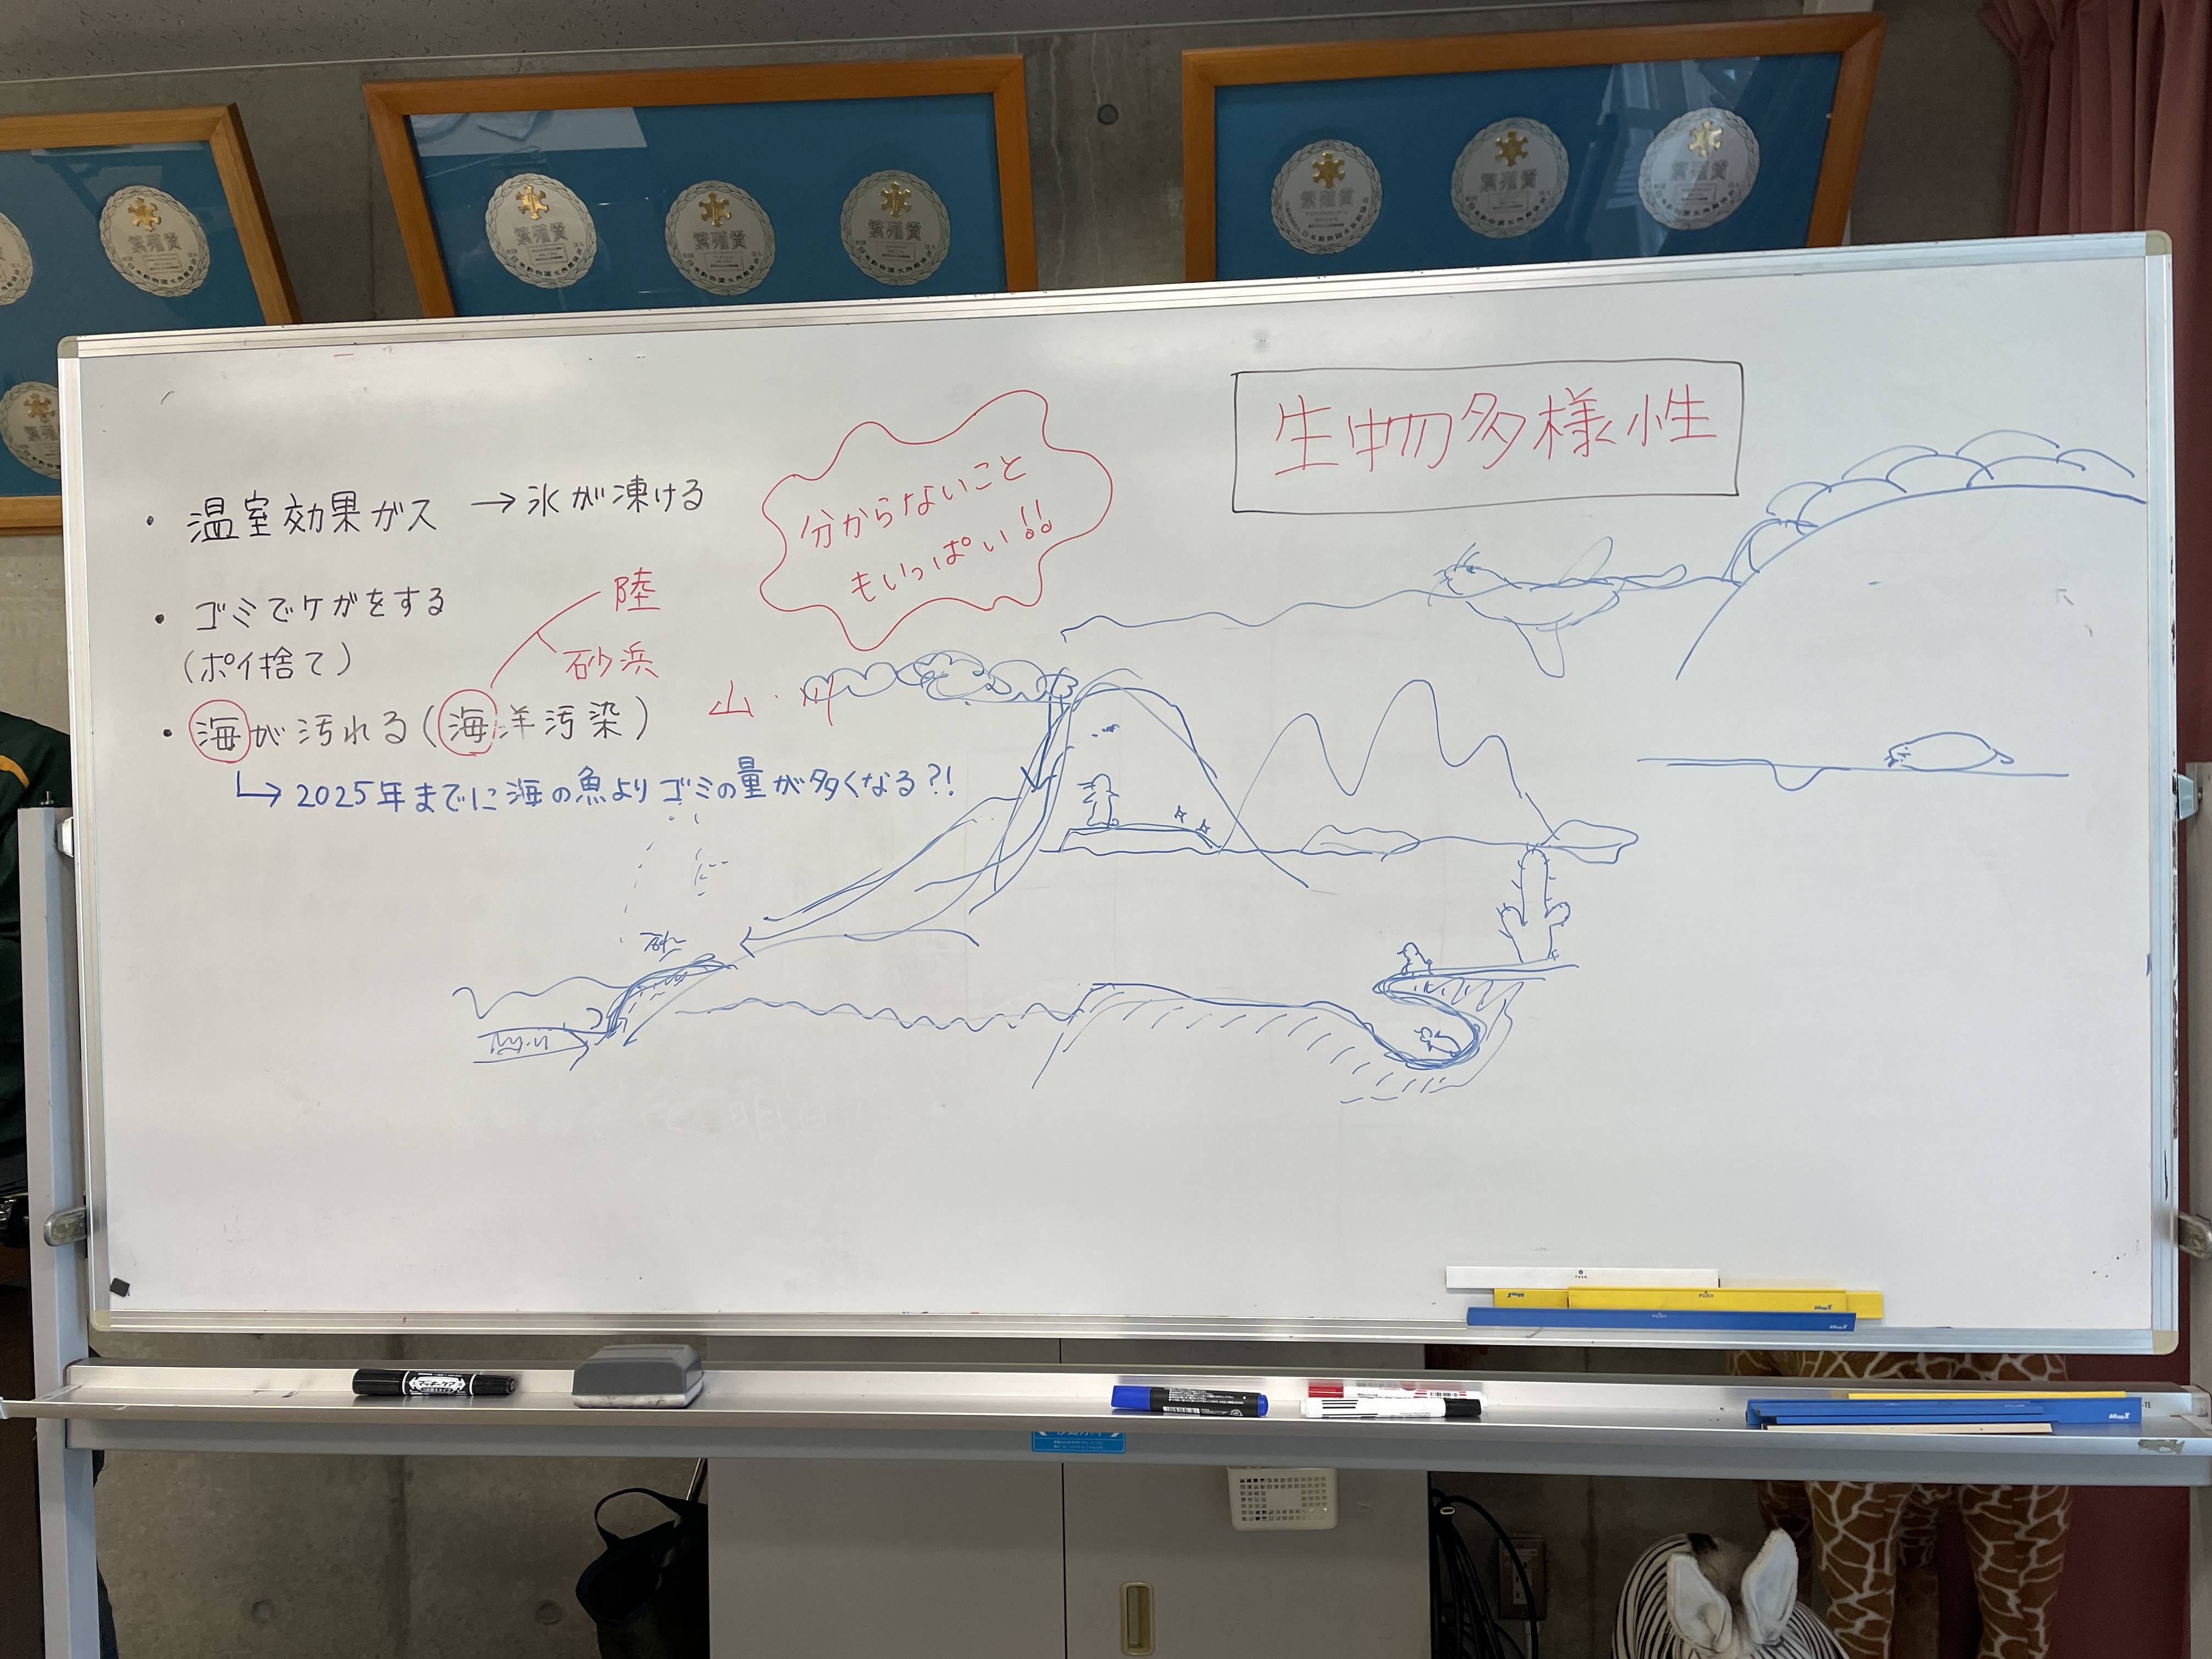 繁殖賞
繁殖賞
繁殖賞
繁殖賞
繁殖賞
繁殖賞
繁殖賞
繁殖賞
生物多様性
分からないこと
もいっぱい!!
・温室効果ガス → 氷が凍ける
・ゴミでケガをする
(ポイ捨て)
陸
砂浜
・海が汚れる(海洋汚染)
山・川
→ 2025年までに海の魚よりゴミの量が多くなる?!
砂
PUSH
MagX
PUSH
MagX
PUSH
MagX
マッキーケア
MagX